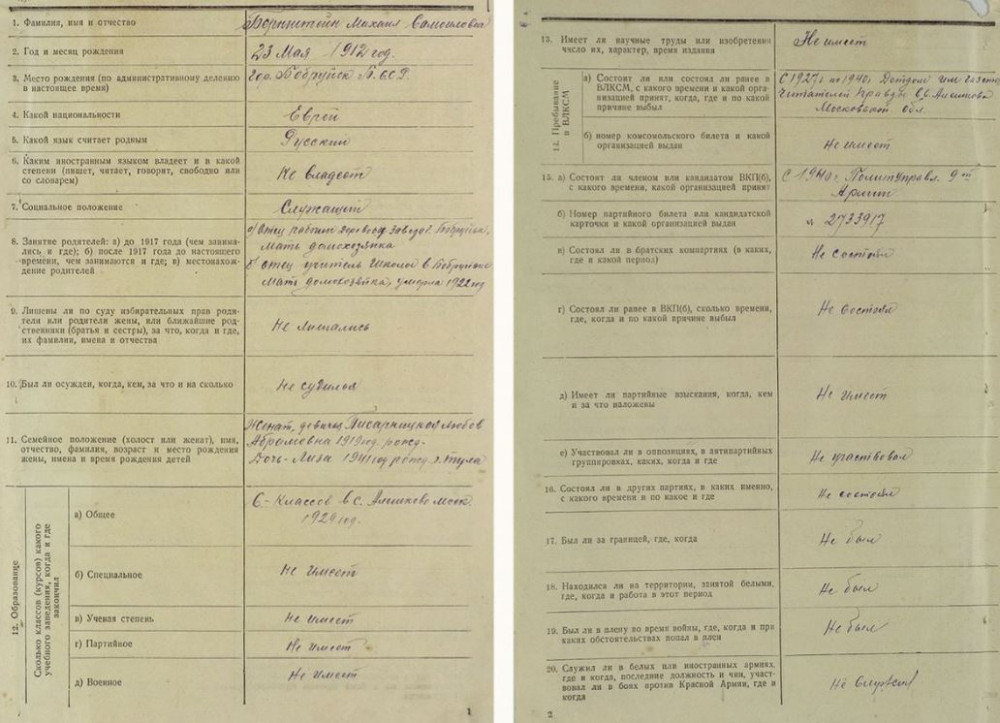 1. Фамилия, имя и отчество
Бернштейн Михаил Самойлович
2. Год и месяц рождения
23 Мая 1912 год.
3. Место рождения (по административному делению
в настоящее время)
гор. Бобруйск Б.ССР.
4. Какой национальности
Еврей
5. Какой язык считает родным
Русский
6. Каким иностранным языком владеет и в какой
степени (пишет, читает, говорит, свободно или
со словарем)
Не владеет
7. Социальное положение
Служащий
8. Занятие родителей: а) до 1917 года (чем занима-
лись и где); б) после 1917 года до настоящего
времени, чем занимаются и где; в) местонахож-
дение родителей
а) Отец рабочий Бобруйск,
Мать домохозяйка
б отец учитель Школы в Бобруйске
Мать домохозяйка, умерла 1922 год
9. Лишены ли по суду избирательных прав роди-
тели или родители жены, или ближайшие род-
ственники (братья и сестры), за что, когда и где,
их фамилия, имена и отчества
Не лишались
10. Был ли осужден, когда, кем, за что и на сколько
Не судился
11. Семейное положение (холост или женат), имя,
отчество, фамилия, возраст и место рождения
жены, имена и время рождения детей
Женат, Любов
Абромовна 1919 год. рожд.
Дочь-Лиза 1941 год рожд. г. Тула
12. Образование
Сколько классов (курсов) какого
учебного заведения, когда и где
закончил
а) Общее
6-Классов в с. Моск.
б) Специальное
Не имеет
в) Ученая степень
Не имеет
г) Партийное
Не имеет
д) Военное
Не имеет
1
13. Имеет ли научные труды или изобретения
число их, характер, время издания
Не имеет
14. Пребывание
в ВЛКСМ
а) Состоит ли или состоял ли ранее в
ВЛКСМ, с какого времени и какой орга-
низацией принят, когда, где и по какой
причине выбыл
С 1927г по 1940г Детдом им газеты
Читателей Правды
Московской обл.
б) номер комсомольского билета и какой
организацией выдан
Не имеет
15. а) Состоит ли членом или кандидатом ВКП(б),
с какого времени, какой организацией принят
С 1940г. Политуправл. 9ой
Армии
б) Номер партийного билета или кандидатской
карточки и какой организацией выдан
№ 2733917
в) Состоял ли в братских компартиях (в каких,
где и какой период)
Не состоял
г) Состоял ли ранее в ВКП(б), сколько времени,
где, когда и по какой причине выбыл
Не состоял
д) Имеет ли партийные взыскания, когда, кем
и за что наложены
Не имеет
е) Участвовал ли в оппозициях, в антипартийных
группировках, каких, когда и где
Не участвовал
16. Состоял ли в других партиях, в каких именно,
с какого времени и по какое и где
Не состоял
17. Был ли за границей, где, когда
Не был
18. Находился ли на территории, занятой белыми,
где, когда и работа в этот период
Не был
19. Был ли в плену во время войны, где, когда и при
каких обстоятельствах попал в плен
Не был
20. Служил ли в белых или иностранных армиях,
где и когда, последние должность и чин, участ-
вовал ли в боях против Красной Армии, где и
когда
Не служил
2